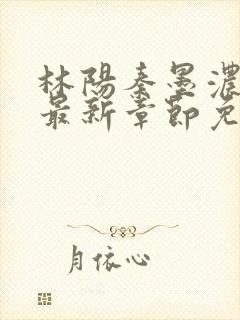 林陽秦墨濃
最新章節免
月依心